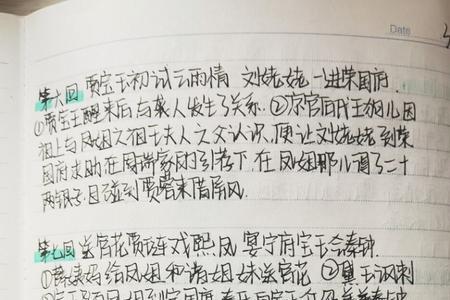 Date
第六回 贾宝玉初试云雨情 刘姥姥一进荣国府.
①贾宝玉醒来后,与袭人发生了关系. ②京官后代王狗儿因
祖上与凤姐之祖王夫人之父认识,便让刘姥姥到荣
国府求助,在周瑞家的引荐下,在凤姐那儿得了二十
两银子,且碰到贾蓉来借屏风.
第七回 送宫花贾琏戏熙凤 宴宁府宝玉会秦钟.
①薛姨妈给凤姐和诸姐妹送宫花 ②